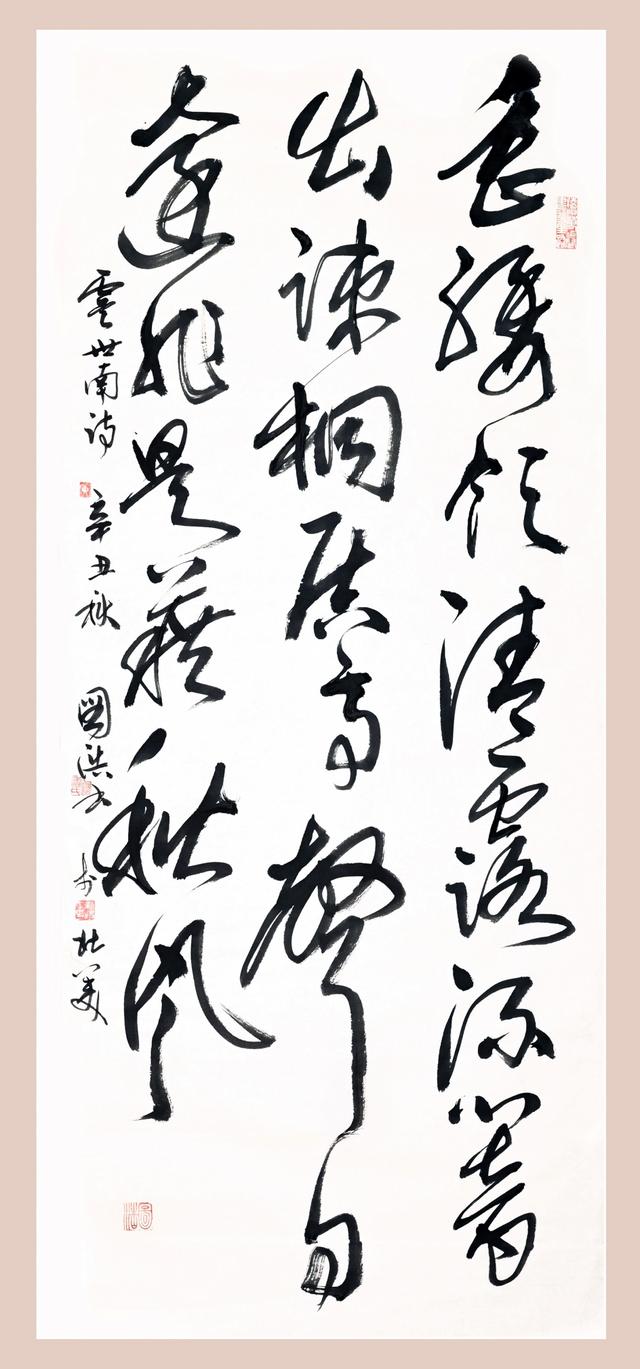 垂緌飲清露流響
出疎桐居高聲自
遠非是藉秋風
虞世南詩 辛丑秋 國浩书 於北美